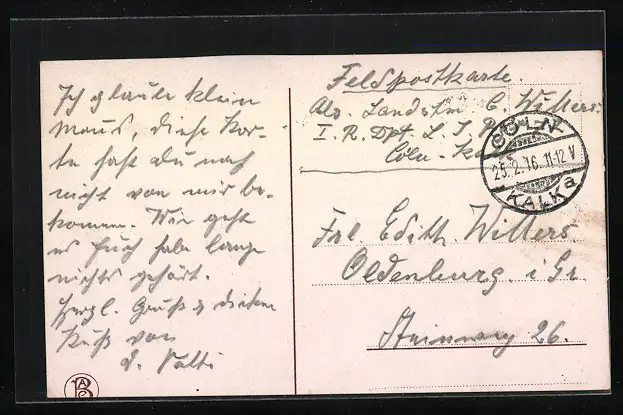 Ich glaube klein
Maus, diese Kar-
te hast du noch
nicht von mir be-
kommen. Wie geht
es Euch habe lange
nichts gehört.
Herzl. Gruß & dicken
Kuß von
d. Vatti
Feldpostkarte.
Abs. Landstm. C. Willers.
I. R. Dpt. L. I. R.
Cöln-Ka
CÖLN-
25.2.16.11-12V
KALK a
Frl. Edith. Willers.
Oldenburg. i. Gr.
Steinweg 26.